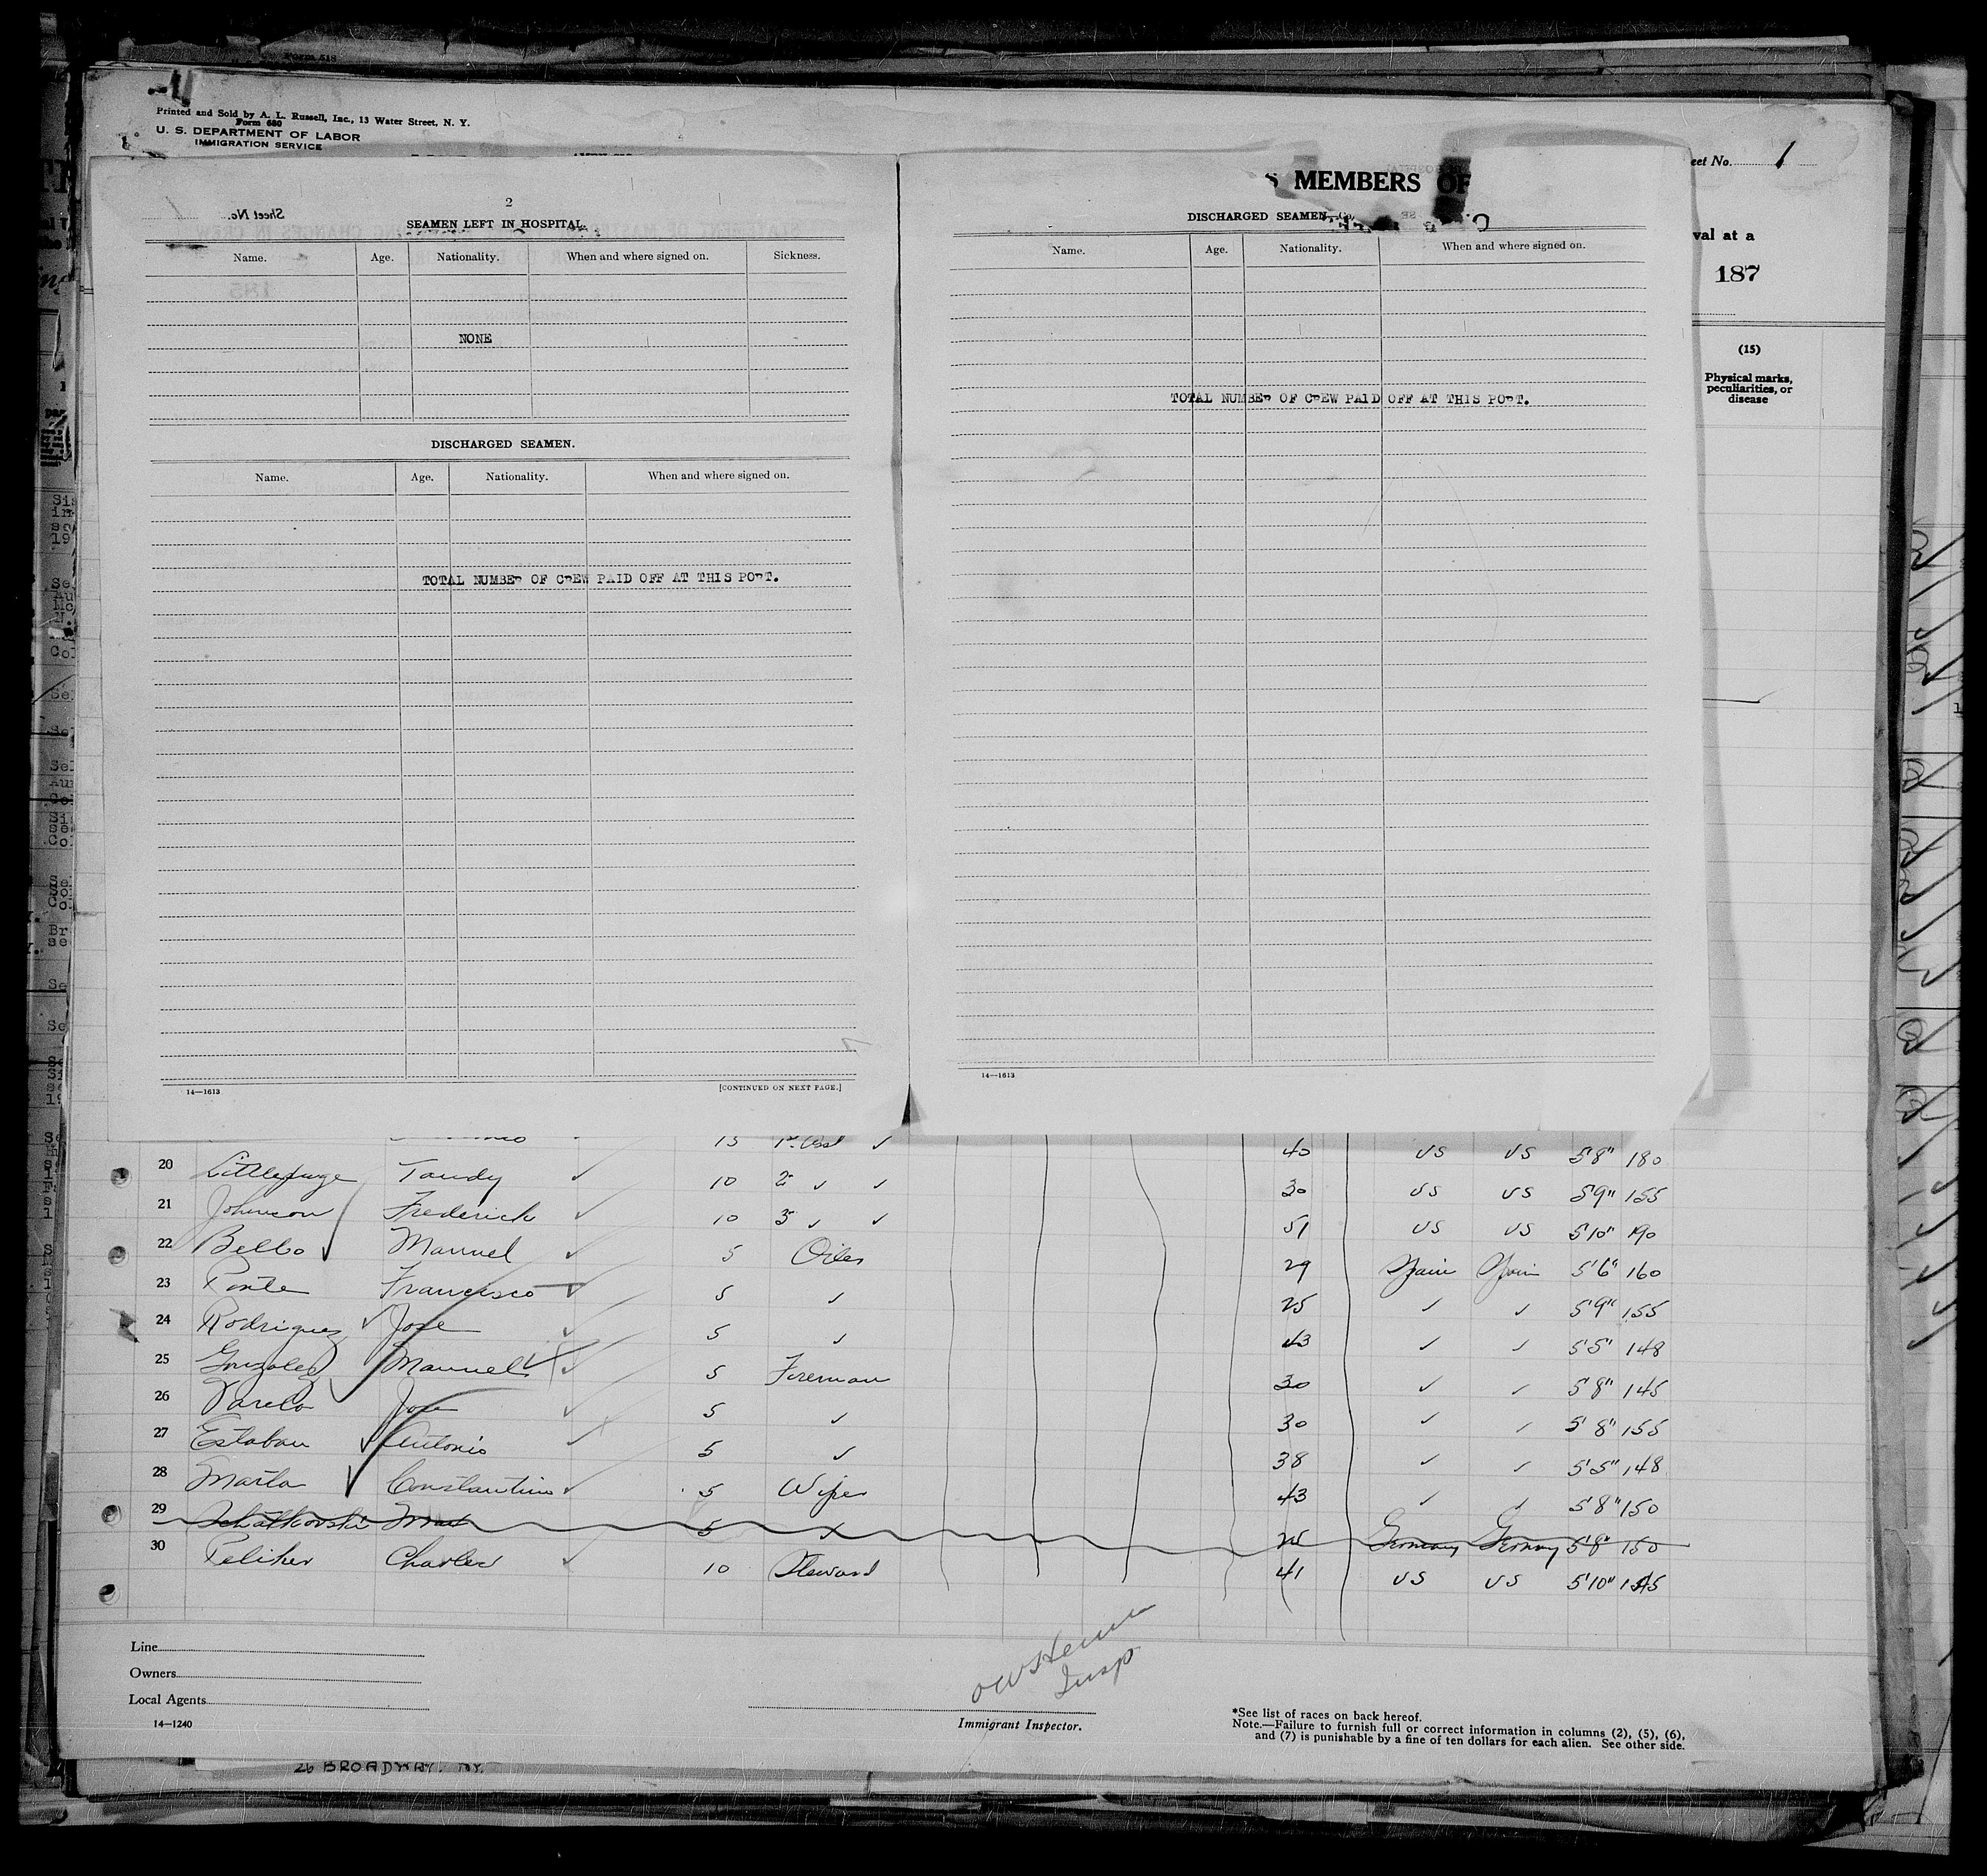 FORM 518
Printed and Sold by A. L. Russell, Inc., 13 Water Street, N. Y.
Form 680
U. S. DEPARTMENT OF LABOR
IMMIGRATION SERVICE
eet No. 1
val at a
187
(15)
Physical marks, peculiarities, or disease
2
Sheet No.
SEAMEN LEFT IN HOSPITAL.
Name. Age. Nationality. When and where signed on. Sickness.
NONE
DISCHARGED SEAMEN.
Name. Age. Nationality. When and where signed on.
TOTAL NUMBER OF CREW PAID OFF AT THIS PORT.
14—1613 [CONTINUED ON NEXT PAGE.]
S MEMBERS OF
DISCHARGED SEAMEN—Co
Name. Age. Nationality. When and where signed on.
TOTAL NUMBER OF CREW PAID OFF AT THIS PORT.
14—1613
15 1st Asst ✓ 40 US US 5'8" 180
20 Littlepage Tandy ✓ 10 2 ✓ ✓ 30 US US 5'9" 155
21 Johnson Frederick ✓ 10 3 ✓ ✓ 51 US US 5'10" 190
22 Bello Manuel ✓ 5 Oiler 29 Spain Spain 5'6" 160
23 Ponte Francisco ✓ 5 ✓ 25 ✓ ✓ 5'9" 155
24 Rodriguez Jose ✓ 5 ✓ 43 ✓ ✓ 5'5" 148
25 Gonzales Manuel ✓ 5 Fireman 30 ✓ ✓ 5'8" 145
26 Varela Jose ✓ 5 ✓ 30 ✓ ✓ 5'8" 155
27 Estaban Antonio ✓ 5 ✓ 38 ✓ ✓ 5'5" 148
28 Marta Constantino ✓ 5 Wiper 43 ✓ ✓ 5'8" 150
29 Schatkovski 5 ✓ 25 Germany Germany 5'8" 150
30 Feliker Charles ✓ 10 Steward 41 US US 5'10"
Line
Owners
Local Agents
14—1240
Insp
Immigrant Inspector.
*See list of races on back hereof.
Note.—Failure to furnish full or correct information in columns (2), (5), (6),
and (7) is punishable by a fine of ten dollars for each alien. See other side.
26 BROADWAY. NY.